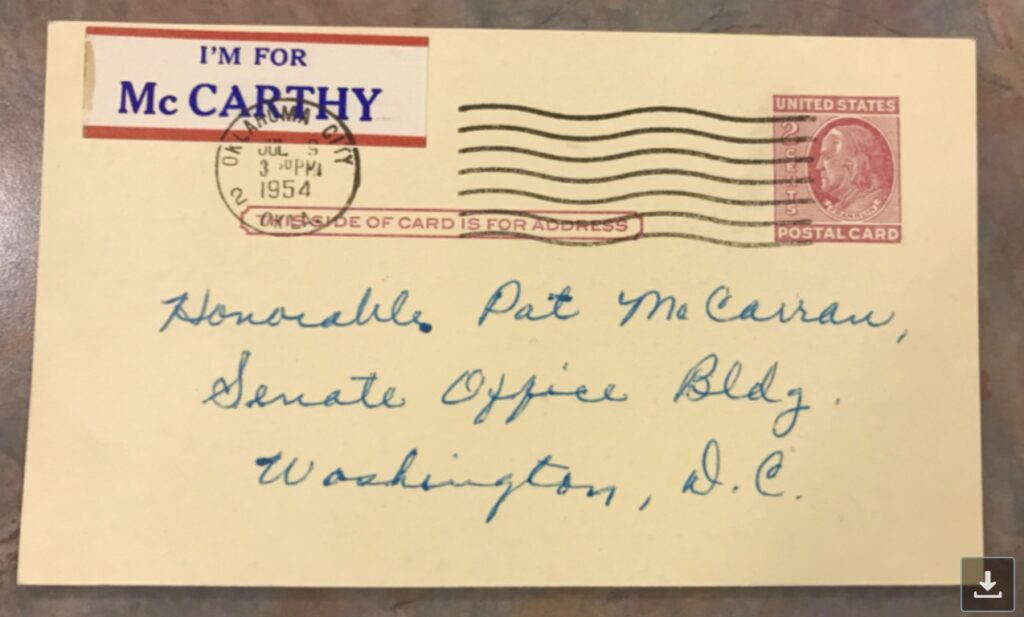 I'M FOR
McCARTHY
OKLAHOMA CITY
JUL 9
3 PM
1954
2 OKLA.
THIS SIDE OF CARD IS FOR ADDRESS
UNITED STATES
2 CENTS
FRANKLIN
POSTAL CARD
Honorable Pat McCarran,
Senate Office Bldg.
Washington, D.C.